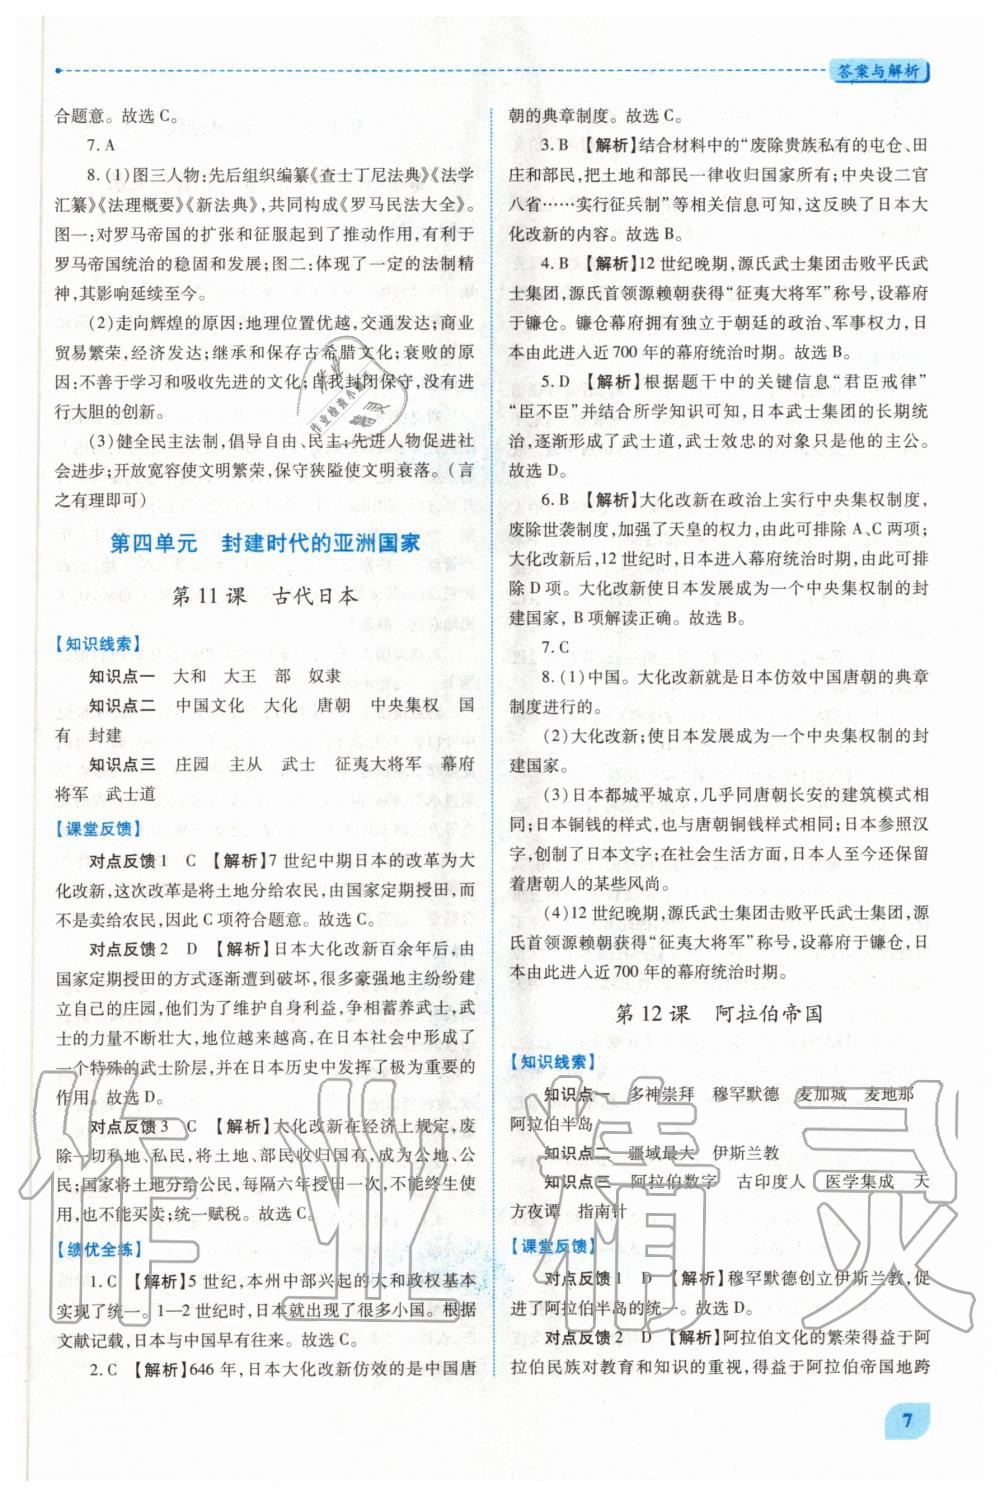 答案与解析
合题意。故选 C。
7. A
8. (1)图三人物:先后组织编纂《查士丁尼法典》《法学
汇纂》《法理概要》《新法典》,共同构成《罗马民法大全》。
图一:对罗马帝国的扩张和征服起到了推动作用,有利于
罗马帝国统治的稳固和发展;图二:体现了一定的法制精
神,其影响延续至今。
(2)走向辉煌的原因:地理位置优越,交通发达;商业
贸易繁荣,经济发达;继承和保存古希腊文化;衰败的原
因:不善于学习和吸收先进的文化;自我封闭保守,没有进
行大胆的创新。
(3)健全民主法制,倡导自由、民主;先进人物促进社
会进步;开放宽容使文明繁荣,保守狭隘使文明衰落。(言
之有理即可)
第四单元 封建时代的亚洲国家
第 11 课 古代日本
【知识线索】
知识点一 大和 大王 部 奴隶
知识点二 中国文化 大化 唐朝 中央集权 国
有 封建
知识点三 庄园 主从 武士 征夷大将军 幕府
将军 武士道
【课堂反馈】
对点反馈 1 C 【解析】7 世纪中期日本的改革为大
化改新,这次改革是将土地分给农民,由国家定期授田,而
不是卖给农民,因此 C 项符合题意。故选 C。
对点反馈 2 D 【解析】日本大化改新百余年后,由
国家定期授田的方式逐渐遭到破坏,很多豪强地主纷纷建
立自己的庄园,他们为了维护自身利益,争相蓄养武士,武
士的力量不断壮大,地位越来越高,在日本社会中形成了
一个特殊的武士阶层,并在日本历史中发挥了极为重要的
作用。故选 D。
对点反馈 3 C 【解析】大化改新在经济上规定,废
除一切私地、私民,将土地、部民收归国家,成为公地、公
民;国家将土地分给公民,每隔六年授田一次,不能终生使
用,也不能买卖;统一赋税。故选 C。
【绩优全练】
1. C 【解析】5 世纪,本州中部兴起的大和政权基本
实现了统一。1—2 世纪时,日本就出现了很多小国。根据
文献记载,日本与中国早有往来。故选 C。
2. C 【解析】646 年,日本大化改新仿效的是中国唐
朝的典章制度。故选 C。
3. B 【解析】结合材料中的“废除贵族私有的屯仓、田
庄和部民,把土地和部民一律收归国家所有;中央设二官
八省……实行征兵制”等相关信息可知,这反映了日本大
化改新的内容。故选 B。
4. B 【解析】12 世纪晚期,源氏武士集团击败平氏武
士集团,源氏首领源赖朝获得“征夷大将军”称号,设幕府
于镰仓。镰仓幕府拥有独立于朝廷的政治、军事权力,日
本由此进入近 700 年的幕府统治时期。故选 B。
5. D 【解析】根据题干中的关键信息“君臣戒律”
“臣不臣”并结合所学知识可知,日本武士集团的长期统
治,逐渐形成了武士道,武士效忠的对象只是他的主公。
故选 D。
6. B 【解析】大化改新在政治上实行中央集权制度,
废除世袭制度,加强了天皇的权力,由此可排除 A、C 两项;
大化改新后,12 世纪时,日本进入幕府统治时期,由此可排
除 D 项。大化改新使日本发展成为一个中央集权制的封
建国家,B 项解读正确。故选 B。
7. C
8. (1)中国。大化改新就是日本仿效中国唐朝的典章
制度进行的。
(2)大化改新;使日本发展成为一个中央集权制的封
建国家。
(3)日本都城平城京,几乎同唐朝长安的建筑模式相
同;日本铜钱的样式,也与唐朝铜钱样式相同;日本参照汉
字,创制了日本文字;在社会生活方面,日本人至今还保留
着唐朝人的某些风尚。
(4)12 世纪晚期,源氏武士集团击败平氏武士集团,源
氏首领源赖朝获得“征夷大将军”称号,设幕府于镰仓,日
本由此进入近 700 年的幕府统治时期。
第 12 课 阿拉伯帝国
【知识线索】
知识点一 多神崇拜 穆罕默德 麦加城 麦地那
阿拉伯半岛
知识点二 疆域最大 伊斯兰教
知识点三 阿拉伯数字 古印度人 医学集成 天
方夜谭 指南针
【课堂反馈】
对点反馈 1 D 【解析】穆罕默德创立伊斯兰教,促
进了阿拉伯半岛的统一。故选 D。
对点反馈 2 D 【解析】阿拉伯文化的繁荣得益于阿
拉伯民族对教育和知识的重视,得益于阿拉伯帝国地跨
7
作业精灵